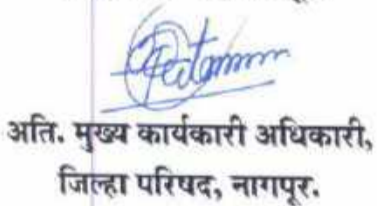 अति. मुख्य कार्यकारी अधिकारी,
जिल्हा परिषद, नागपूर.